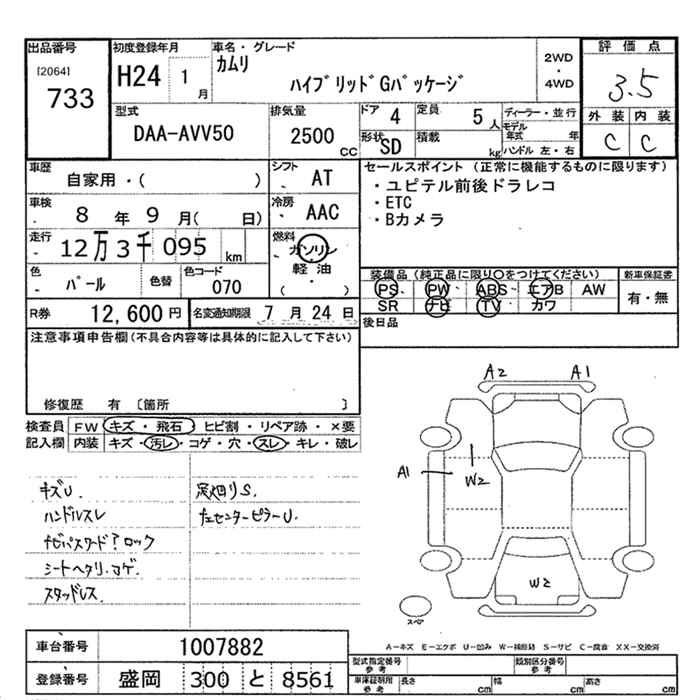 出品番号
[2064]
733
初度登録年月
H24 1月
車名・グレード
カムリ
ハイブリッドGパッケージ
2WD
・
4WD
評価点
3.5
外装 内装
C C
型式
DAA-AVV50
排気量
2500 cc
ドア 4
定員 5人
形状 SD
積載 kg
ディーラー・並行
モデル年式 年
ハンドル 左・右
車歴
自家用・( )
シフト
AT
車検
8年9月( 日)
冷房
AAC
走行
12万3千095km
燃料
ガソリン
軽油
( ・ )
色
パール
色替
色コード
070
R券 12,600円
名変通知期限 7月24日
セールスポイント (正常に機能するものに限ります)
・ユピテル前後ドラレコ
・ETC
・Bカメラ
装備品(純正品に限り○をつけてください)
新車保証書
PS PW ABS エアB AW
SR ナビ TV カワ
有・無
後日品
注意事項申告欄(不具合内容等は具体的に記入して下さい)
修復歴 有 〔箇所 〕
検査員記入欄
FW キズ・飛石・ヒビ割・リペア跡・×要
内装 キズ・汚レ・コゲ・穴・スレ・キレ・破レ
キズU.
ハンドルスレ
ナビパスワード?ロック
シートヘタリ.コゲ.
スタッドレス.
足廻りS.
左センターピラーU.
A2 A1
A1
W2
W2
スペア
A-キズ E-エクボ U-凹み W-補修跡 S-サビ C-腐食 XX-交換済
車台番号 1007882
登録番号 盛岡 300 と 8561
型式指定番号 参考
類別区分番号 参考
車庫証明用 参考
長さ cm
幅 cm
高さ cm